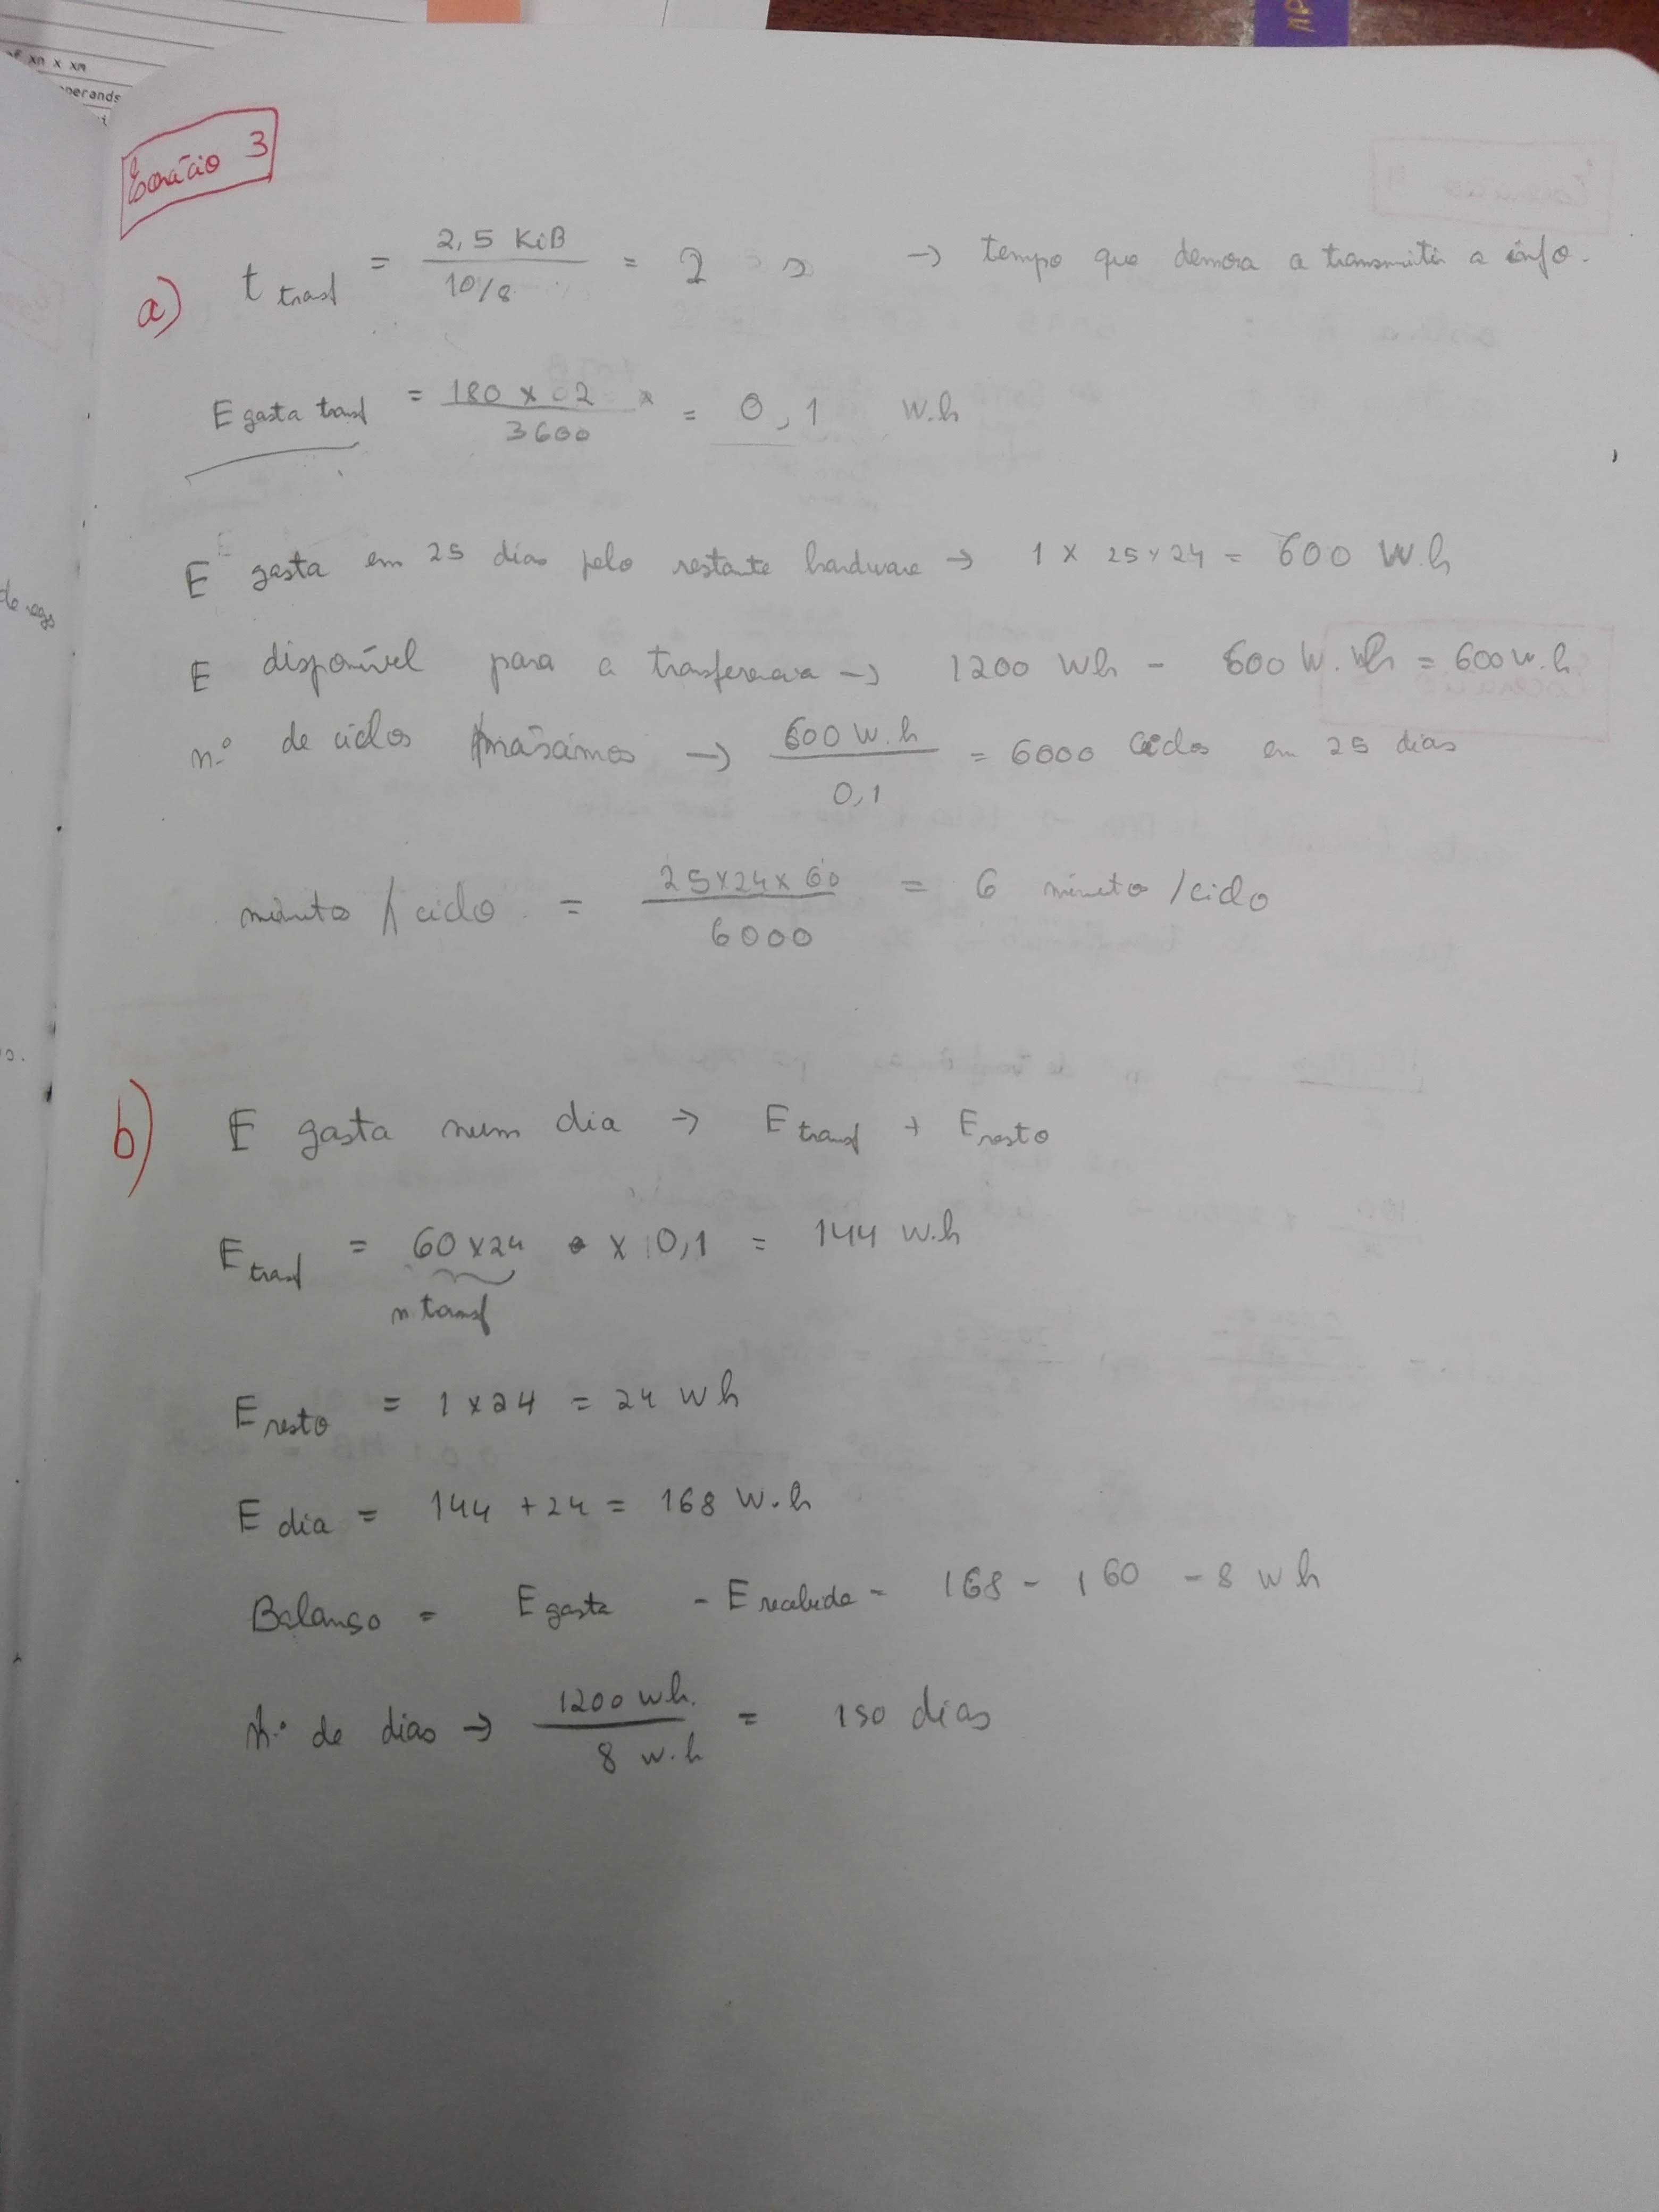 xn x xm
perands
Exercício 3
a) t transf = 2,5 KiB / 10/8 = 2 s → tempo que demora a transmitir a info.
E gasta transf = 180 x 02 x / 3600 = 0,1 W.h
E gasta em 25 dias pelo restante hardware → 1 x 25 x 24 = 600 W.h
E disponível para a transferencia → 1200 Wh - 600 W. Wh = 600 W.h
n.º de ciclos máximos → 600 W.h / 0,1 = 6000 Ciclos em 25 dias
minuto / ciclo = 25x24x60 / 6000 = 6 minuto /ciclo
b) E gasta num dia → E transf + E resto
E transf = 60 x 24 x 0,1 = 144 W.h
n transf
E resto = 1 x 24 = 24 Wh
E dia = 144 + 24 = 168 W.h
Balanço = E gasta - E recebida = 168 - 160 = 8 Wh
N.º de dias → 1200 Wh. / 8 W.h = 150 dias